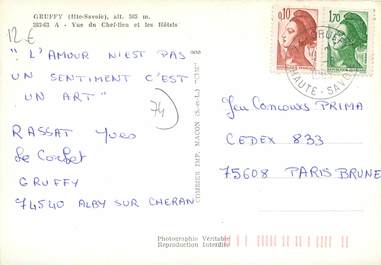 GRUFFY (Hte-Savoie), alt. 565 m.
283-63 A - Vue du Chef-lieu et les Hôtels
12 €
" L'AMOUR N'EST PAS
UN SENTIMENT C'EST
UN ART"
74
RASSAT Yves
Le Corbet
GRUFFY
74540 ALBY SUR CHERAN
COMBIER IMP. MACON (S.-et-L.) "CIM"
0,10
1,70
HAUTE-SAVOIE
Jeu Concours PRIMA
CEDEX 833
75608 PARIS BRUNE
Photographie Véritable
Reproduction Interdite